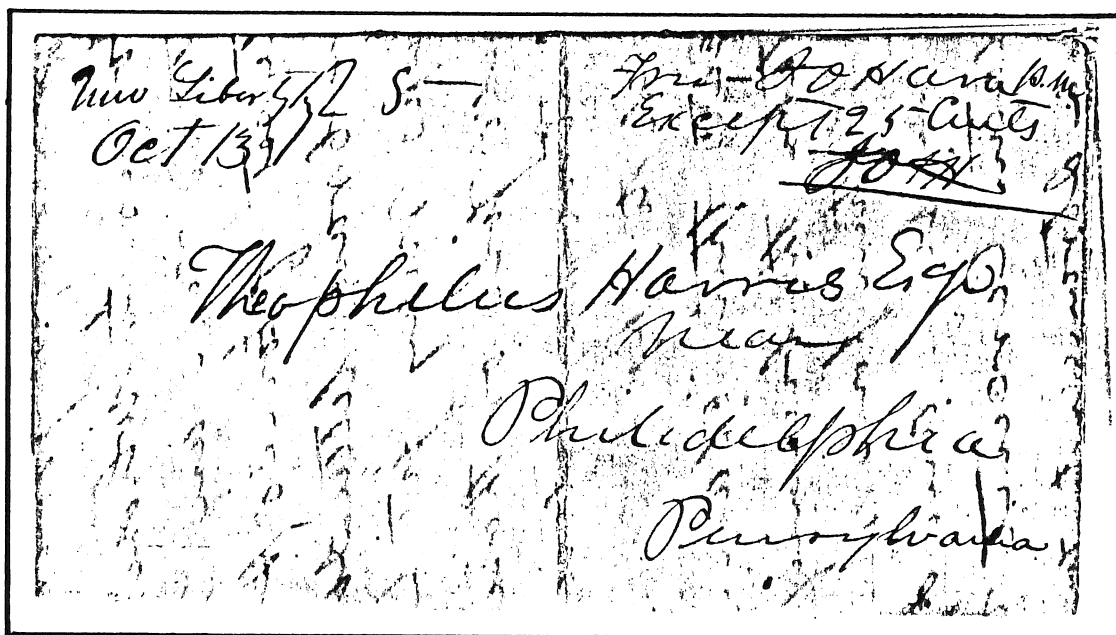 New Liberty
Oct 13
Free - J O Hara P.M
Except 25 Cents
JOH
Theophelus Harris Esqr
near
Philidelphia
Pennsylvania